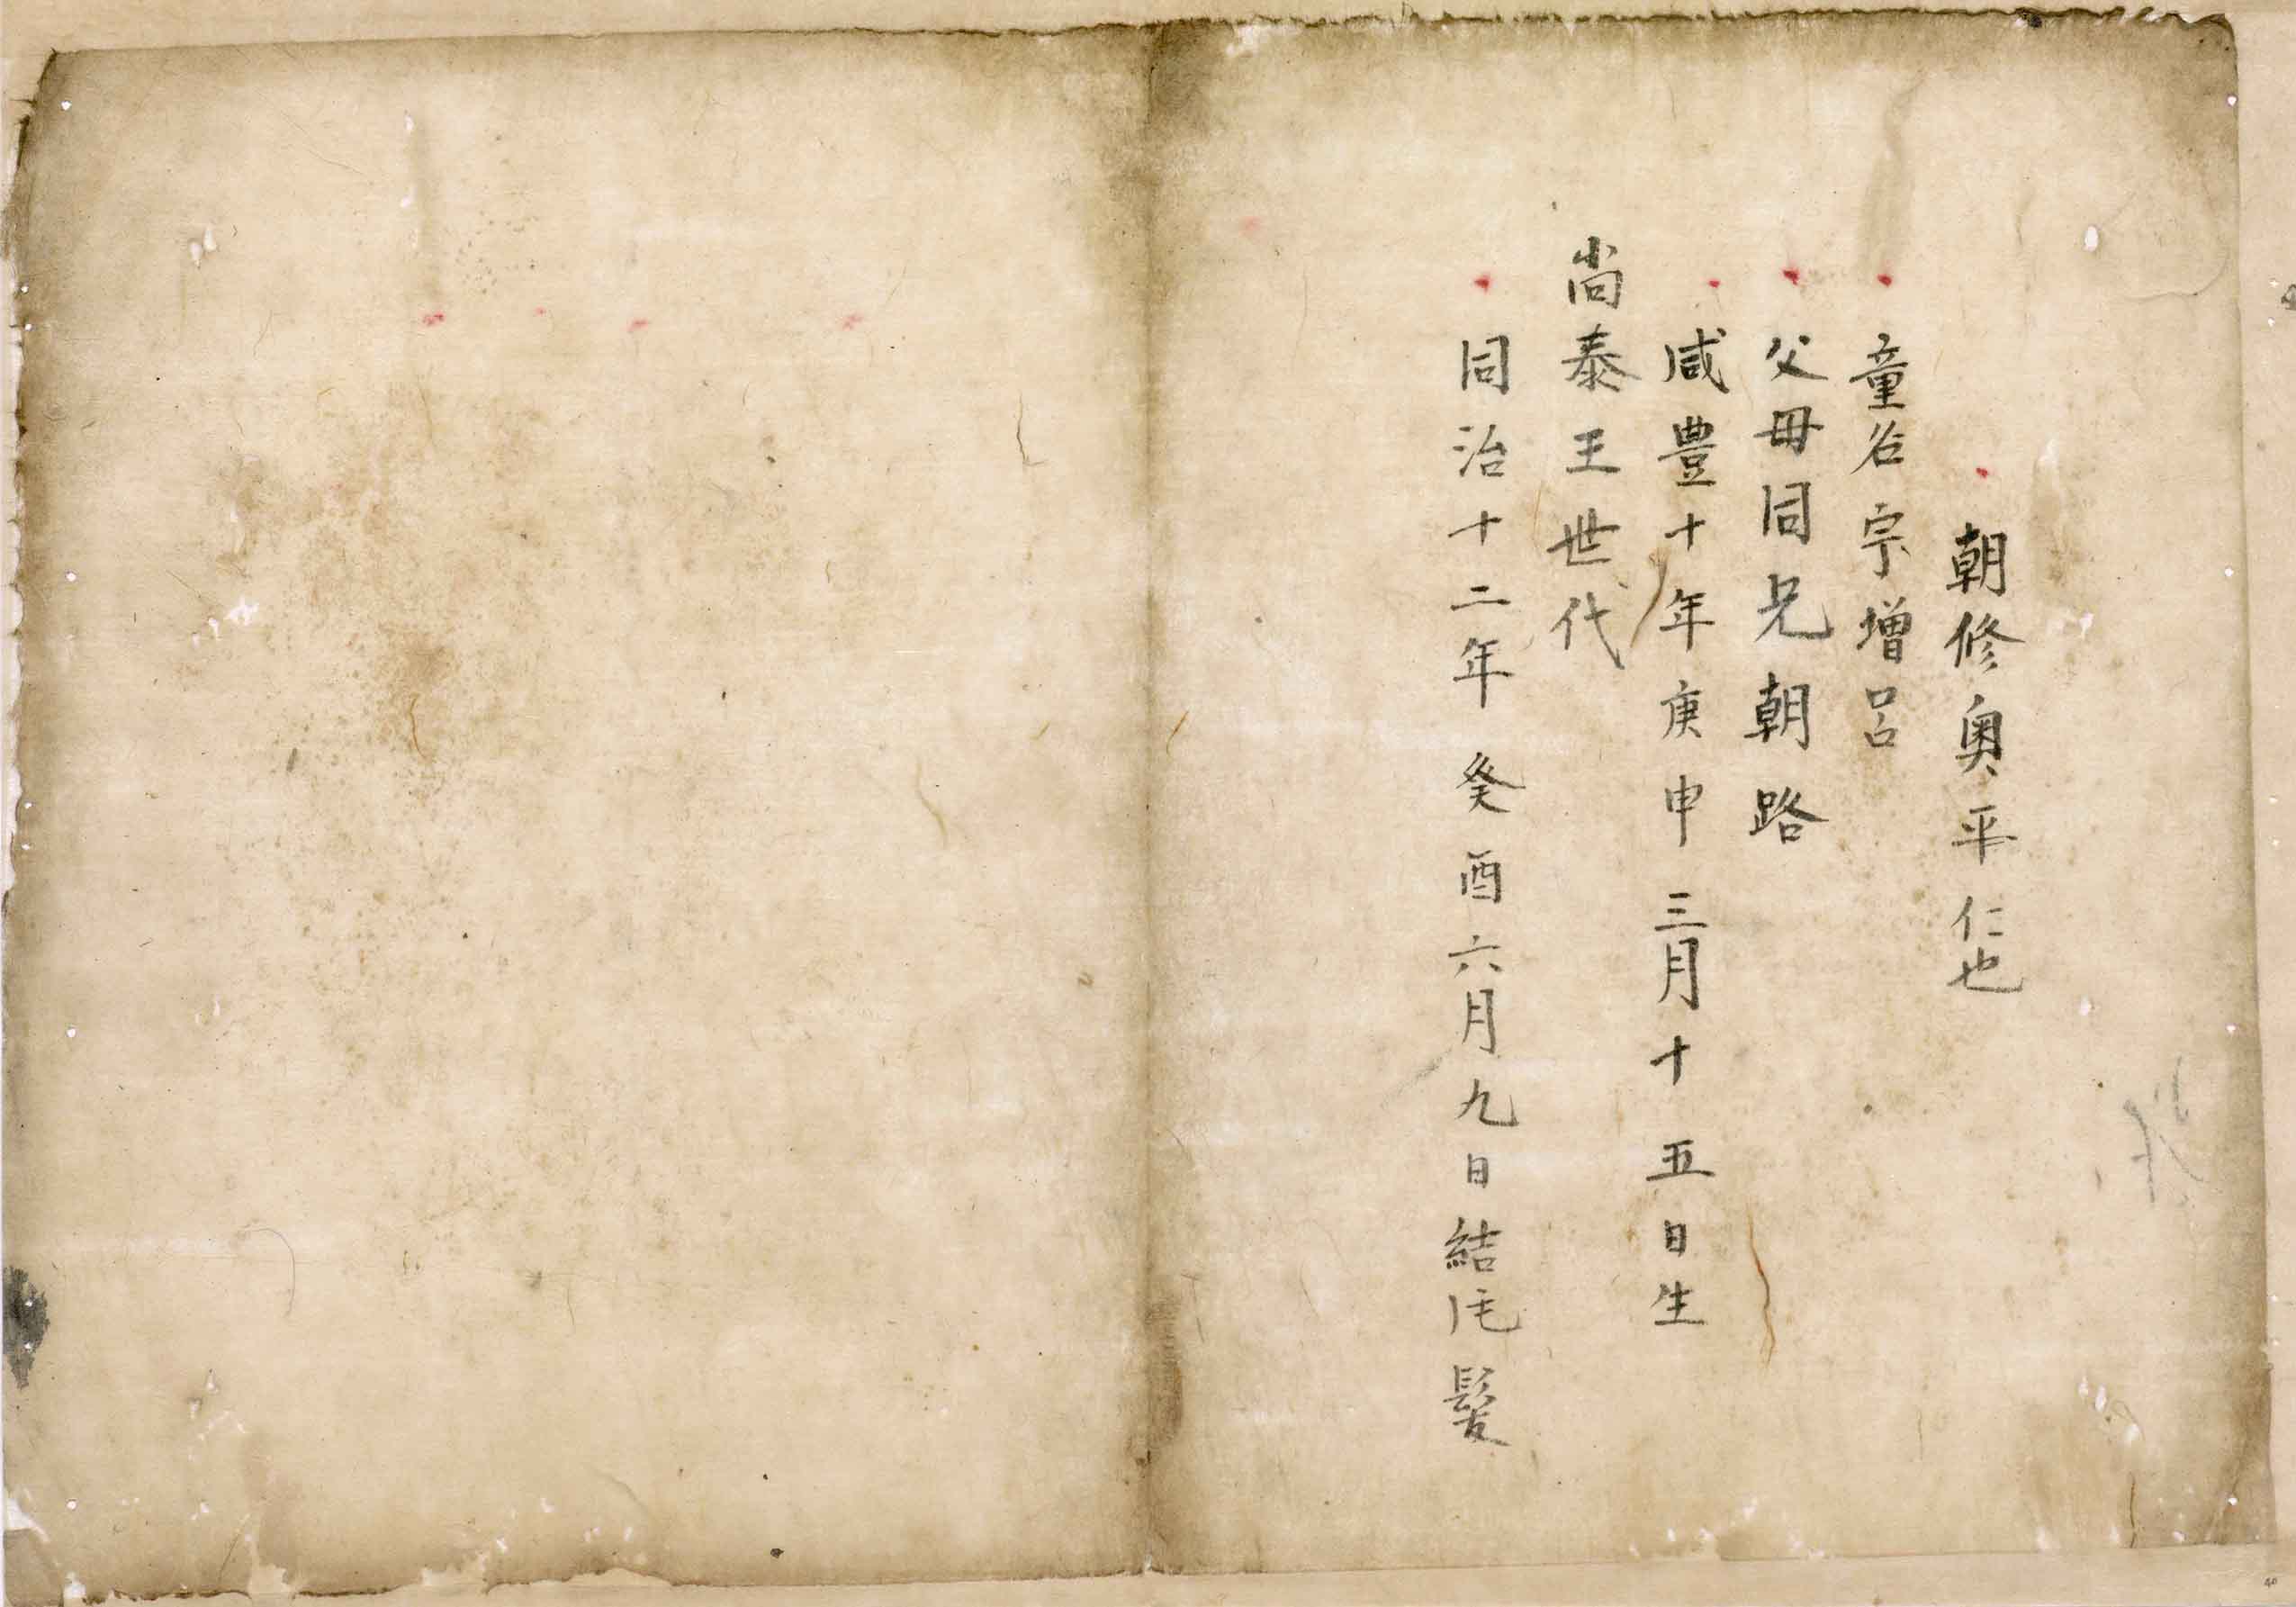 朝修奥平仁也
童名宗增呂
父母同兄朝路
咸豊十年庚申三月十五日生
尚泰王世代
同治十二年癸酉六月九日結𠂆髮